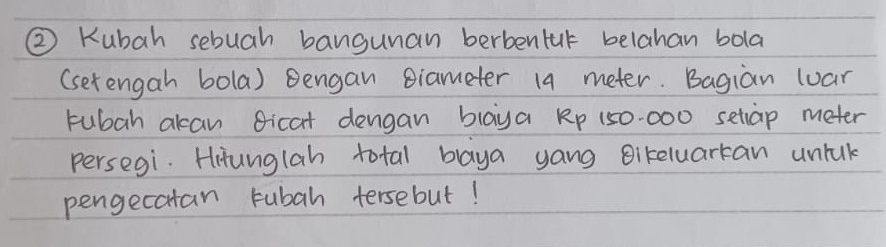 ② Kubah sebuah bangunan berbentuk belahan bola
(setengah bola) dengan diameter 14 meter. Bagian luar
kubah akan dicat dengan biaya Rp 150.000 setiap meter
persegi. Hitunglah total biaya yang dikeluarkan untuk
pengecatan kubah tersebut !